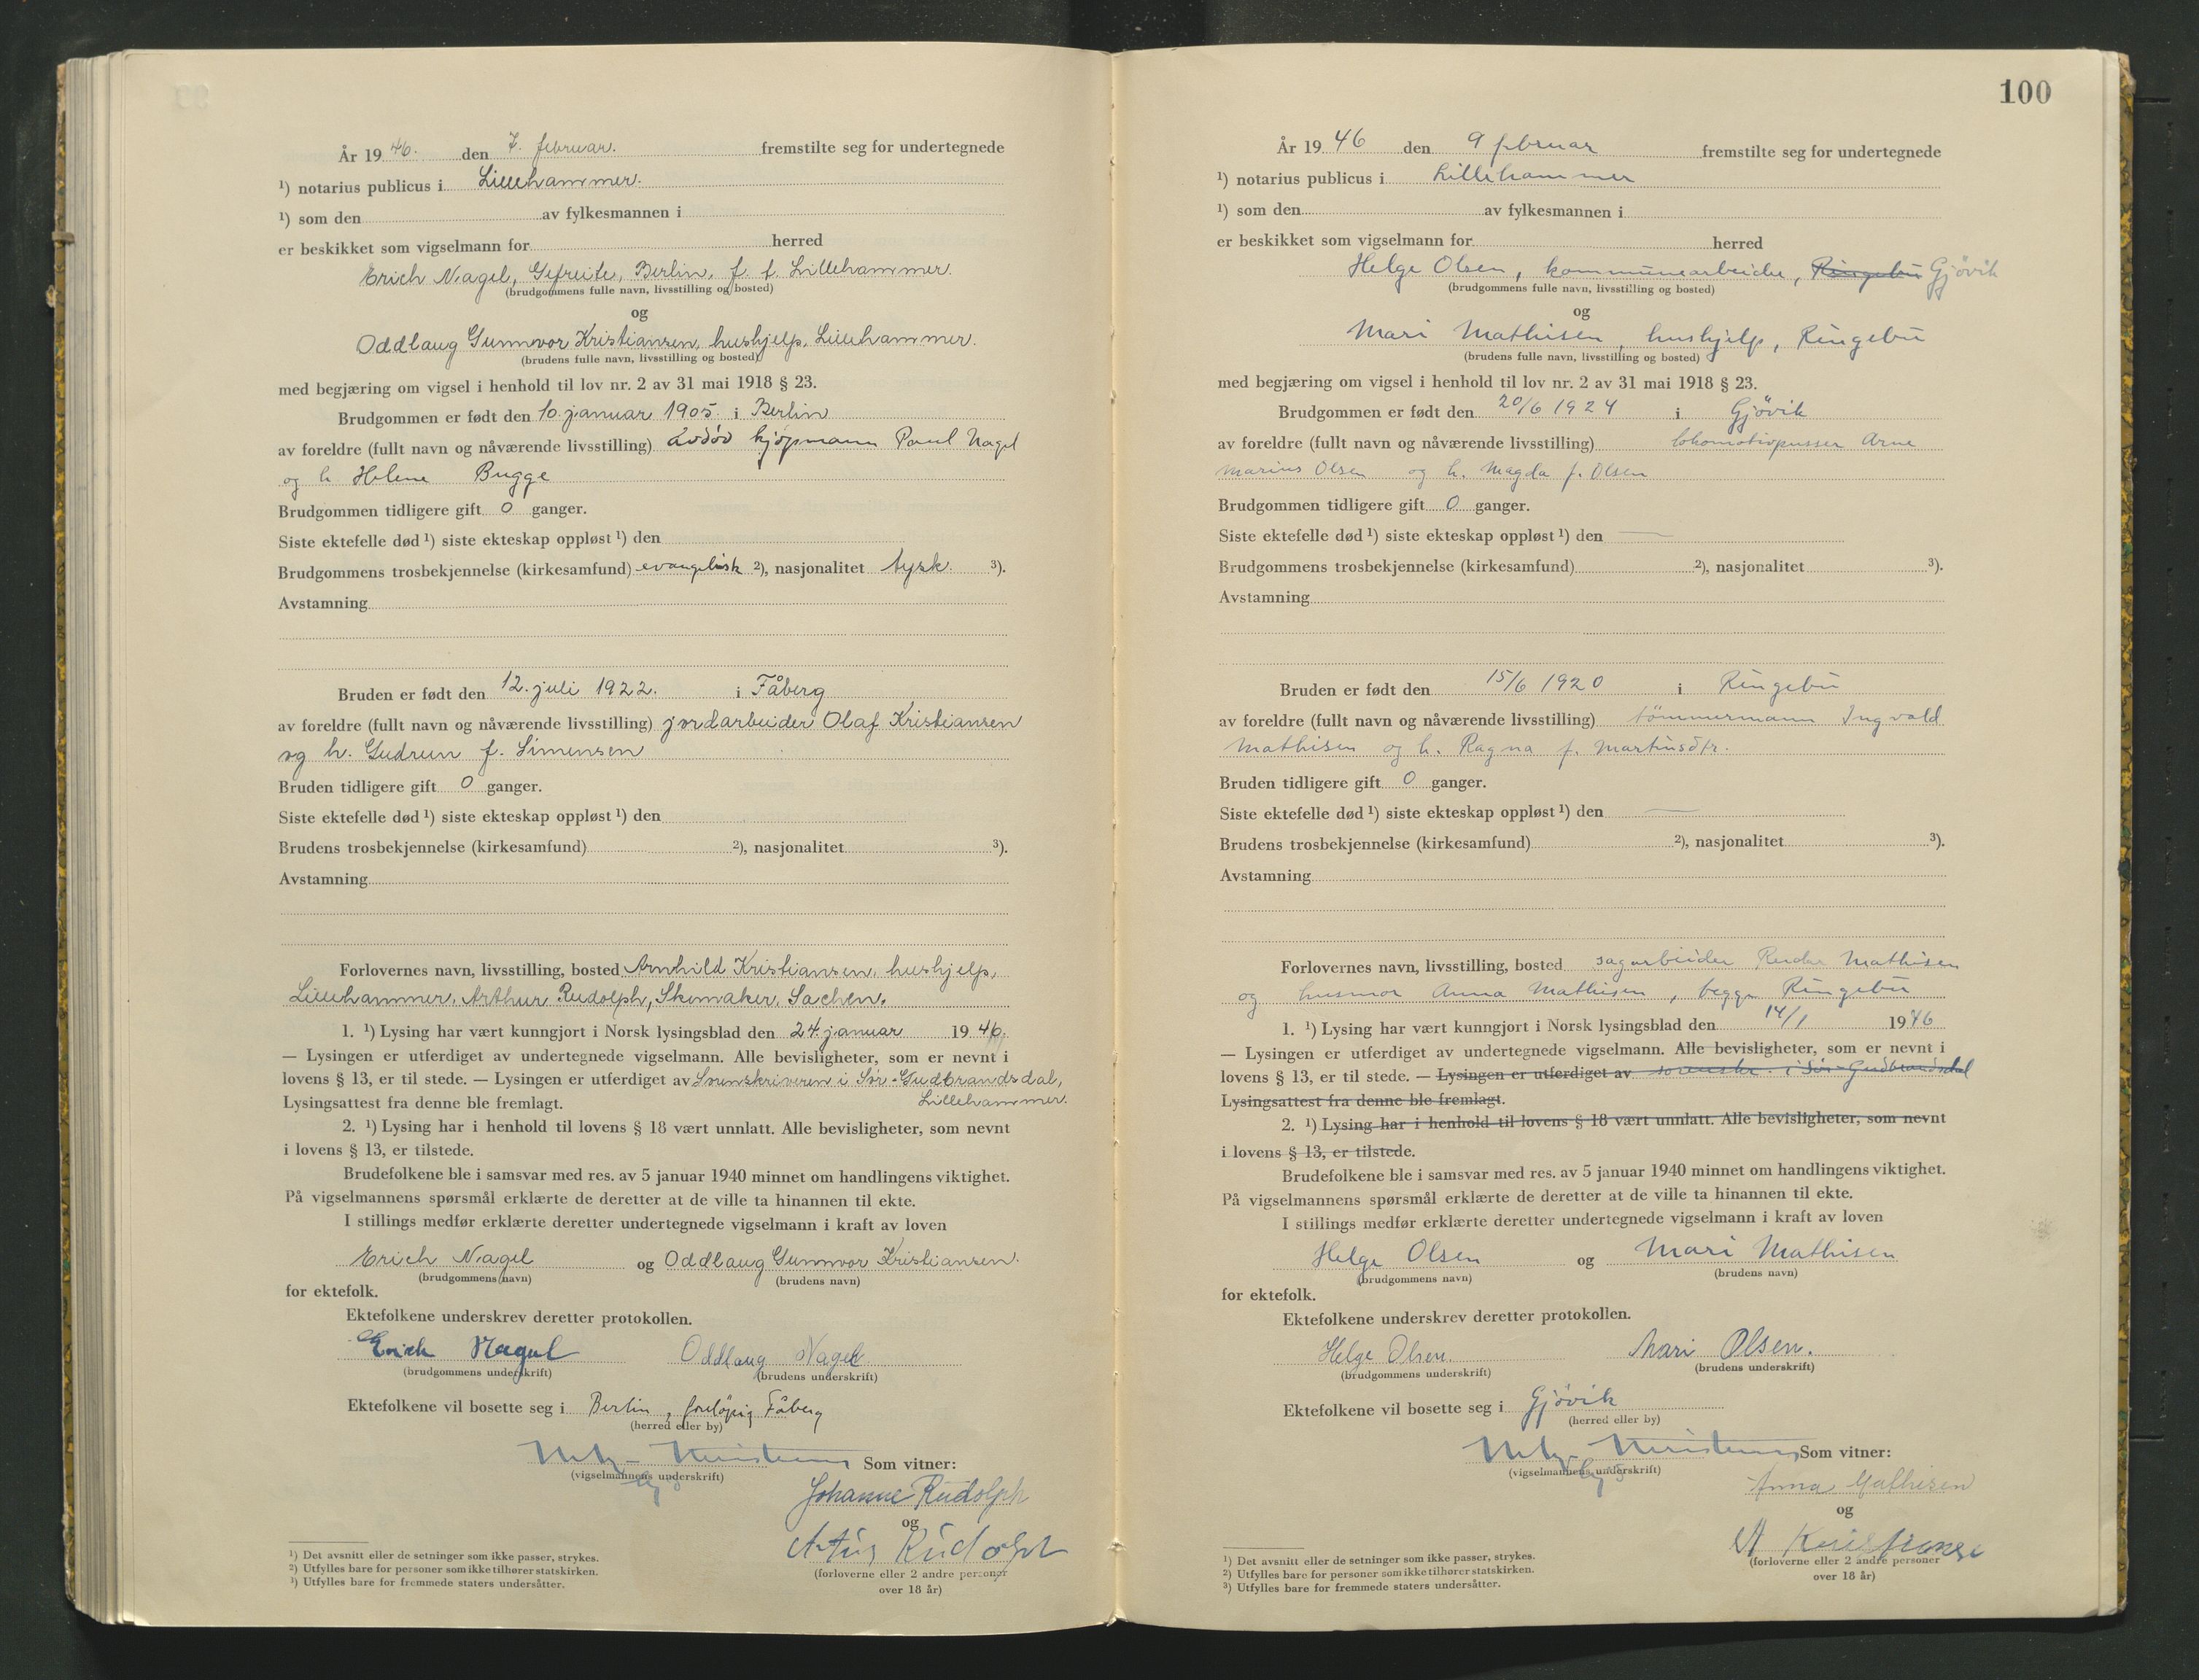 År 1946. den 7. februar. fremstilte seg for undertegnede
¹) notarius publicus i Lillehammer.
¹) som den av fylkesmannen i
er beskikket som vigselmann for herred
Erich Nagel, Gefreite, Berlin, f. t. Lillehammer.
(brudgommens fulle navn, livsstilling og bosted)
og
Oddlaug Gunnvor Kristiansen, hushjelp, Lillehammer.
(brudens fulle navn, livsstilling og bosted)
med begjæring om vigsel i henhold til lov nr. 2 av 31 mai 1918 § 23.
Brudgommen er født den 10. januar 1905. i Berlin
av foreldre (fullt navn og nåværende livsstilling) avdøv kjøpmann Paul Nagel
og h. Helene Bugge
Brudgommen tidligere gift 0 ganger.
Siste ektefelle død ¹) siste ekteskap oppløst ¹) den
Brudgommens trosbekjennelse (kirkesamfund) evangelisk ²), nasjonalitet tysk. ³).
Avstamning
Bruden er født den 12. juli 1922. i Fåberg
av foreldre (fullt navn og nåværende livsstilling) jordarbeider Olaf Kristiansen
og h. Gudrun f. Simensen
Bruden tidligere gift 0 ganger.
Siste ektefelle død ¹) siste ekteskap oppløst ¹) den
Brudens trosbekjennelse (kirkesamfund) ²), nasjonalitet ³).
Avstamning
Forlovernes navn, livsstilling, bosted Arnhild Kristiansen, hushjelp,
Lillehammer, Arthur Rudolph, Skomaker, Sachen.
1. ¹) Lysing har vært kunngjort i Norsk lysingsblad den 24. januar 1946.
— Lysingen er utferdiget av undertegnede vigselmann. Alle bevisligheter, som er nevnt i
lovens § 13, er til stede. — Lysingen er utferdiget av Sorenskriveren i Sør-Gudbrandsdal,
Lysingsattest fra denne ble fremlagt. Lillehammer.
2. ¹) Lysing har i henhold til lovens § 18 vært unnlatt. Alle bevisligheter, som nevnt
i lovens § 13, er tilstede.
Brudefolkene ble i samsvar med res. av 5 januar 1940 minnet om handlingens viktighet.
På vigselmannens spørsmål erklærte de deretter at de ville ta hinannen til ekte.
I stillings medfør erklærte deretter undertegnede vigselmann i kraft av loven
Erich Nagel og Oddlaug Gunnvor Kristiansen.
(brudgommens navn) (brudens navn)
for ektefolk.
Ektefolkene underskrev deretter protokollen.
Erich Nagel Oddlaug Nagel
(brudgommens underskrift) (brudens underskrift)
Ektefolkene vil bosette seg i Berlin, foreløpig Fåberg
(herred eller by)
Som vitner:
(vigselmannens underskrift)
Johanne Rudolph
og
Artur Rudolph
(forloverne eller 2 andre personer
over 18 år)
¹) Det avsnitt eller de setninger som ikke passer, strykes.
²) Utfylles bare for personer som ikke tilhører statskirken.
³) Utfylles bare for fremmede staters undersåtter.
100
År 1946 den 9 februar fremstilte seg for undertegnede
¹) notarius publicus i Lillehammer
¹) som den av fylkesmannen i
er beskikket som vigselmann for herred
Helge Olsen, kommunearbeider, Ringebu Gjövik
(brudgommens fulle navn, livsstilling og bosted)
og
Mari Mathisen, hushjelp, Ringebu
(brudens fulle navn, livsstilling og bosted)
med begjæring om vigsel i henhold til lov nr. 2 av 31 mai 1918 § 23.
Brudgommen er født den 20/6 1924 i Gjövik
av foreldre (fullt navn og nåværende livsstilling) lokomotivpusser Arne
Marius Olsen og h. Magda f. Olsen
Brudgommen tidligere gift 0 ganger.
Siste ektefelle død ¹) siste ekteskap oppløst ¹) den —
Brudgommens trosbekjennelse (kirkesamfund) ²), nasjonalitet ³).
Avstamning
Bruden er født den 15/6 1920 i Ringebu
av foreldre (fullt navn og nåværende livsstilling) tömmermann Ingvald
Mathisen og h. Ragna f. Martinsdtr.
Bruden tidligere gift 0 ganger.
Siste ektefelle død ¹) siste ekteskap oppløst ¹) den —
Brudens trosbekjennelse (kirkesamfund) ²), nasjonalitet ³).
Avstamning
Forlovernes navn, livsstilling, bosted sagarbeider Reidar Mathisen
og husmor Anna Mathisen, begge Ringebu
1. ¹) Lysing har vært kunngjort i Norsk lysingsblad den 14/1 1946
— Lysingen er utferdiget av undertegnede vigselmann. Alle bevisligheter, som er nevnt i
lovens § 13, er til stede. — Lysingen er utferdiget av sorenskr. i Sör-Gudbrandsdal
Lysingsattest fra denne ble fremlagt.
2. ¹) Lysing har i henhold til lovens § 18 vært unnlatt. Alle bevisligheter, som nevnt
i lovens § 13, er tilstede.
Brudefolkene ble i samsvar med res. av 5 januar 1940 minnet om handlingens viktighet.
På vigselmannens spørsmål erklærte de deretter at de ville ta hinannen til ekte.
I stillings medfør erklærte deretter undertegnede vigselmann i kraft av loven
Helge Olsen og Mari Mathisen
(brudgommens navn) (brudens navn)
for ektefolk.
Ektefolkene underskrev deretter protokollen.
Helge Olsen. Mari Olsen.
(brudgommens underskrift) (brudens underskrift)
Ektefolkene vil bosette seg i Gjövik
(herred eller by)
Som vitner:
(vigselmannens underskrift)
Anna Mathisen
og
(forloverne eller 2 andre personer
over 18 år)
¹) Det avsnitt eller de setninger som ikke passer, strykes.
²) Utfylles bare for personer som ikke tilhører statskirken.
³) Utfylles bare for fremmede staters undersåtter.